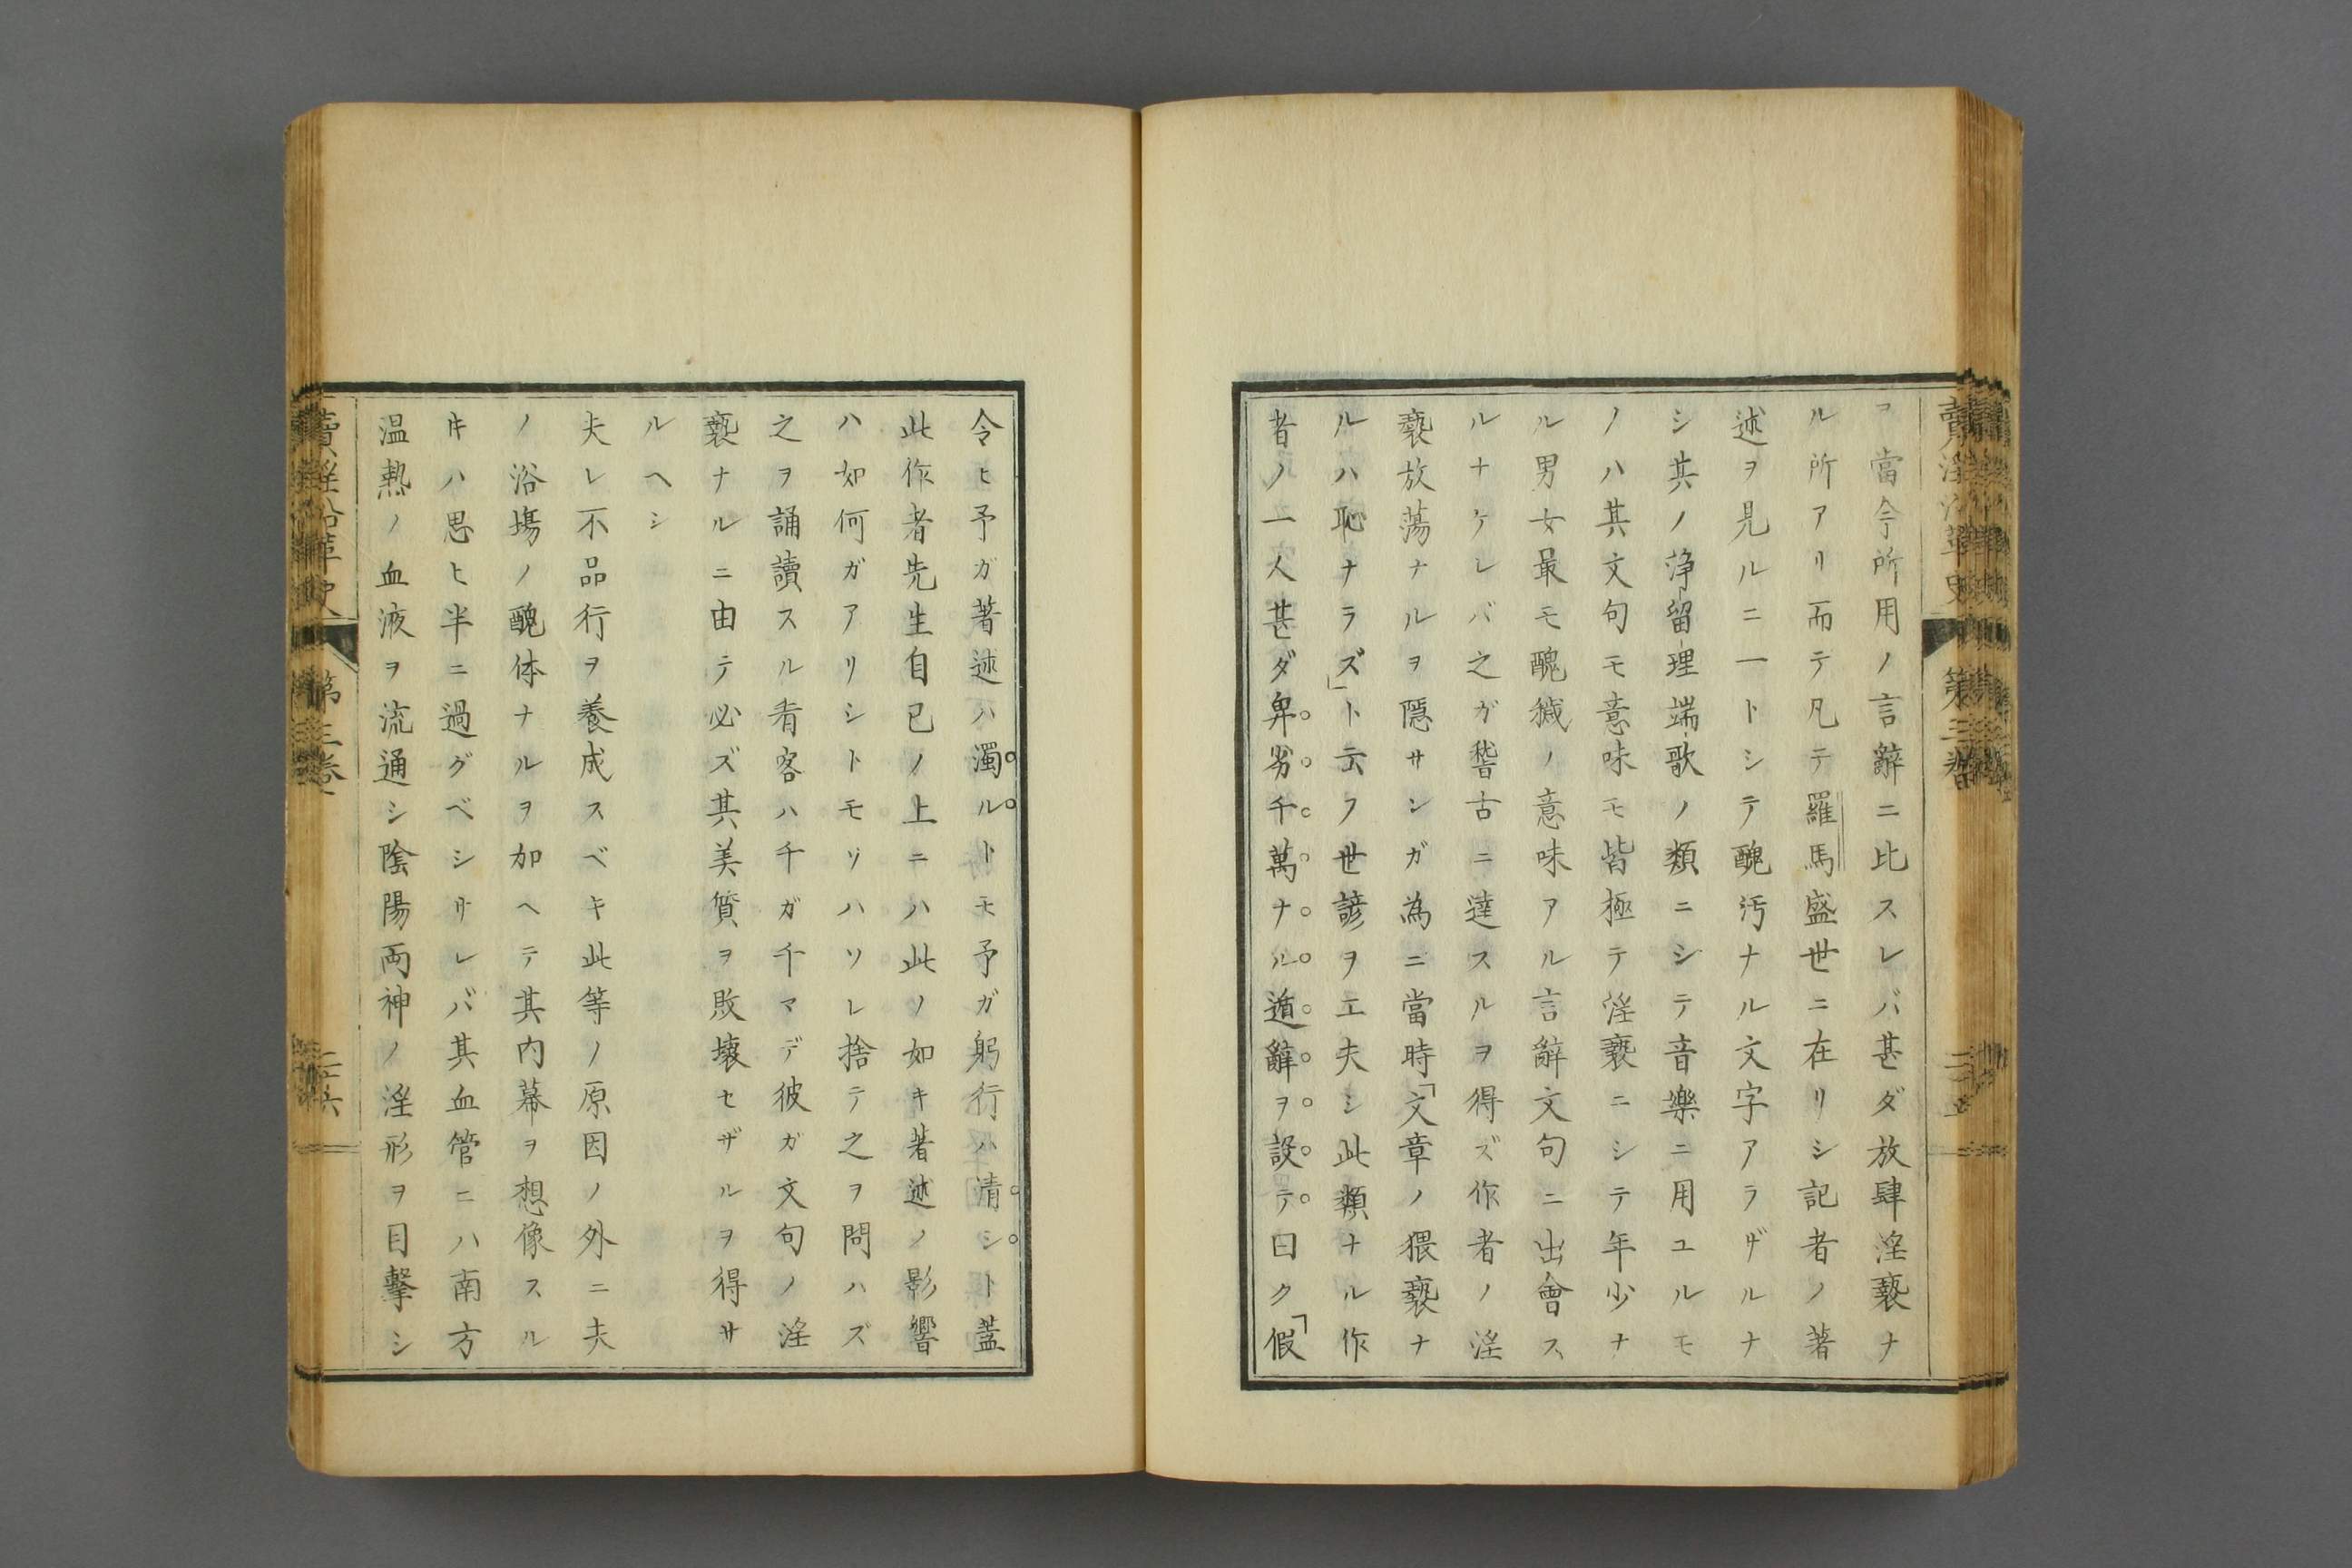 ヲ當今所用ノ言辭ニ比スレバ甚ダ放肆淫褻ナ
ル所アリ而テ凡テ羅馬盛世ニ在リシ記者ノ著
述ヲ見ルニ一トシテ醜汚ナル文字アラザルナ
シ其ノ浄留理端歌ノ類ニシテ音樂ニ用ユルモ
ノハ其文句モ意味モ皆極テ淫褻ニシテ年少ナ
ル男女最モ醜穢ノ意味アル言辭文句ニ出會ス
ルナケレバ之ガ誻古ニ達スルヲ得ズ作者ノ淫
褻放蕩ナルヲ隠サンガ為ニ當時「文章ノ猥褻ナ
ルハ恥ナラズ」ト云フ世諺ヲ工夫シ此類ナル作
者ノ一人甚ダ卑劣千萬ナル遁辭ヲ設テ曰ク「假
賣淫沿革史
第三卷
令ヒ予ガ著述ハ濁ルトモ予ガ躬行ハ清シト蓋
此作者先生自已ノ上ニハ此ノ如キ著述ノ影響
ハ如何ガアリシトモソハソレ捨テ之ヲ問ハズ
之ヲ誦讀スル看客ハ千ガ千マデ彼ガ文句ノ淫
褻ナルニ由テ必ズ其美質ヲ敗壊セザルヲ得サ
ルヘシ
夫レ不品行ヲ養成スベキ此等ノ原因ノ外ニ夫
ノ浴塲ノ醜体ナルヲ加ヘテ其内幕ヲ想像スル
キハ思ヒ半ニ過グベシサレバ其血管ニハ南方
温熱ノ血液ヲ流通シ陰陽両神ノ淫形ヲ目撃シ
賣淫沿革史
第三卷
二六